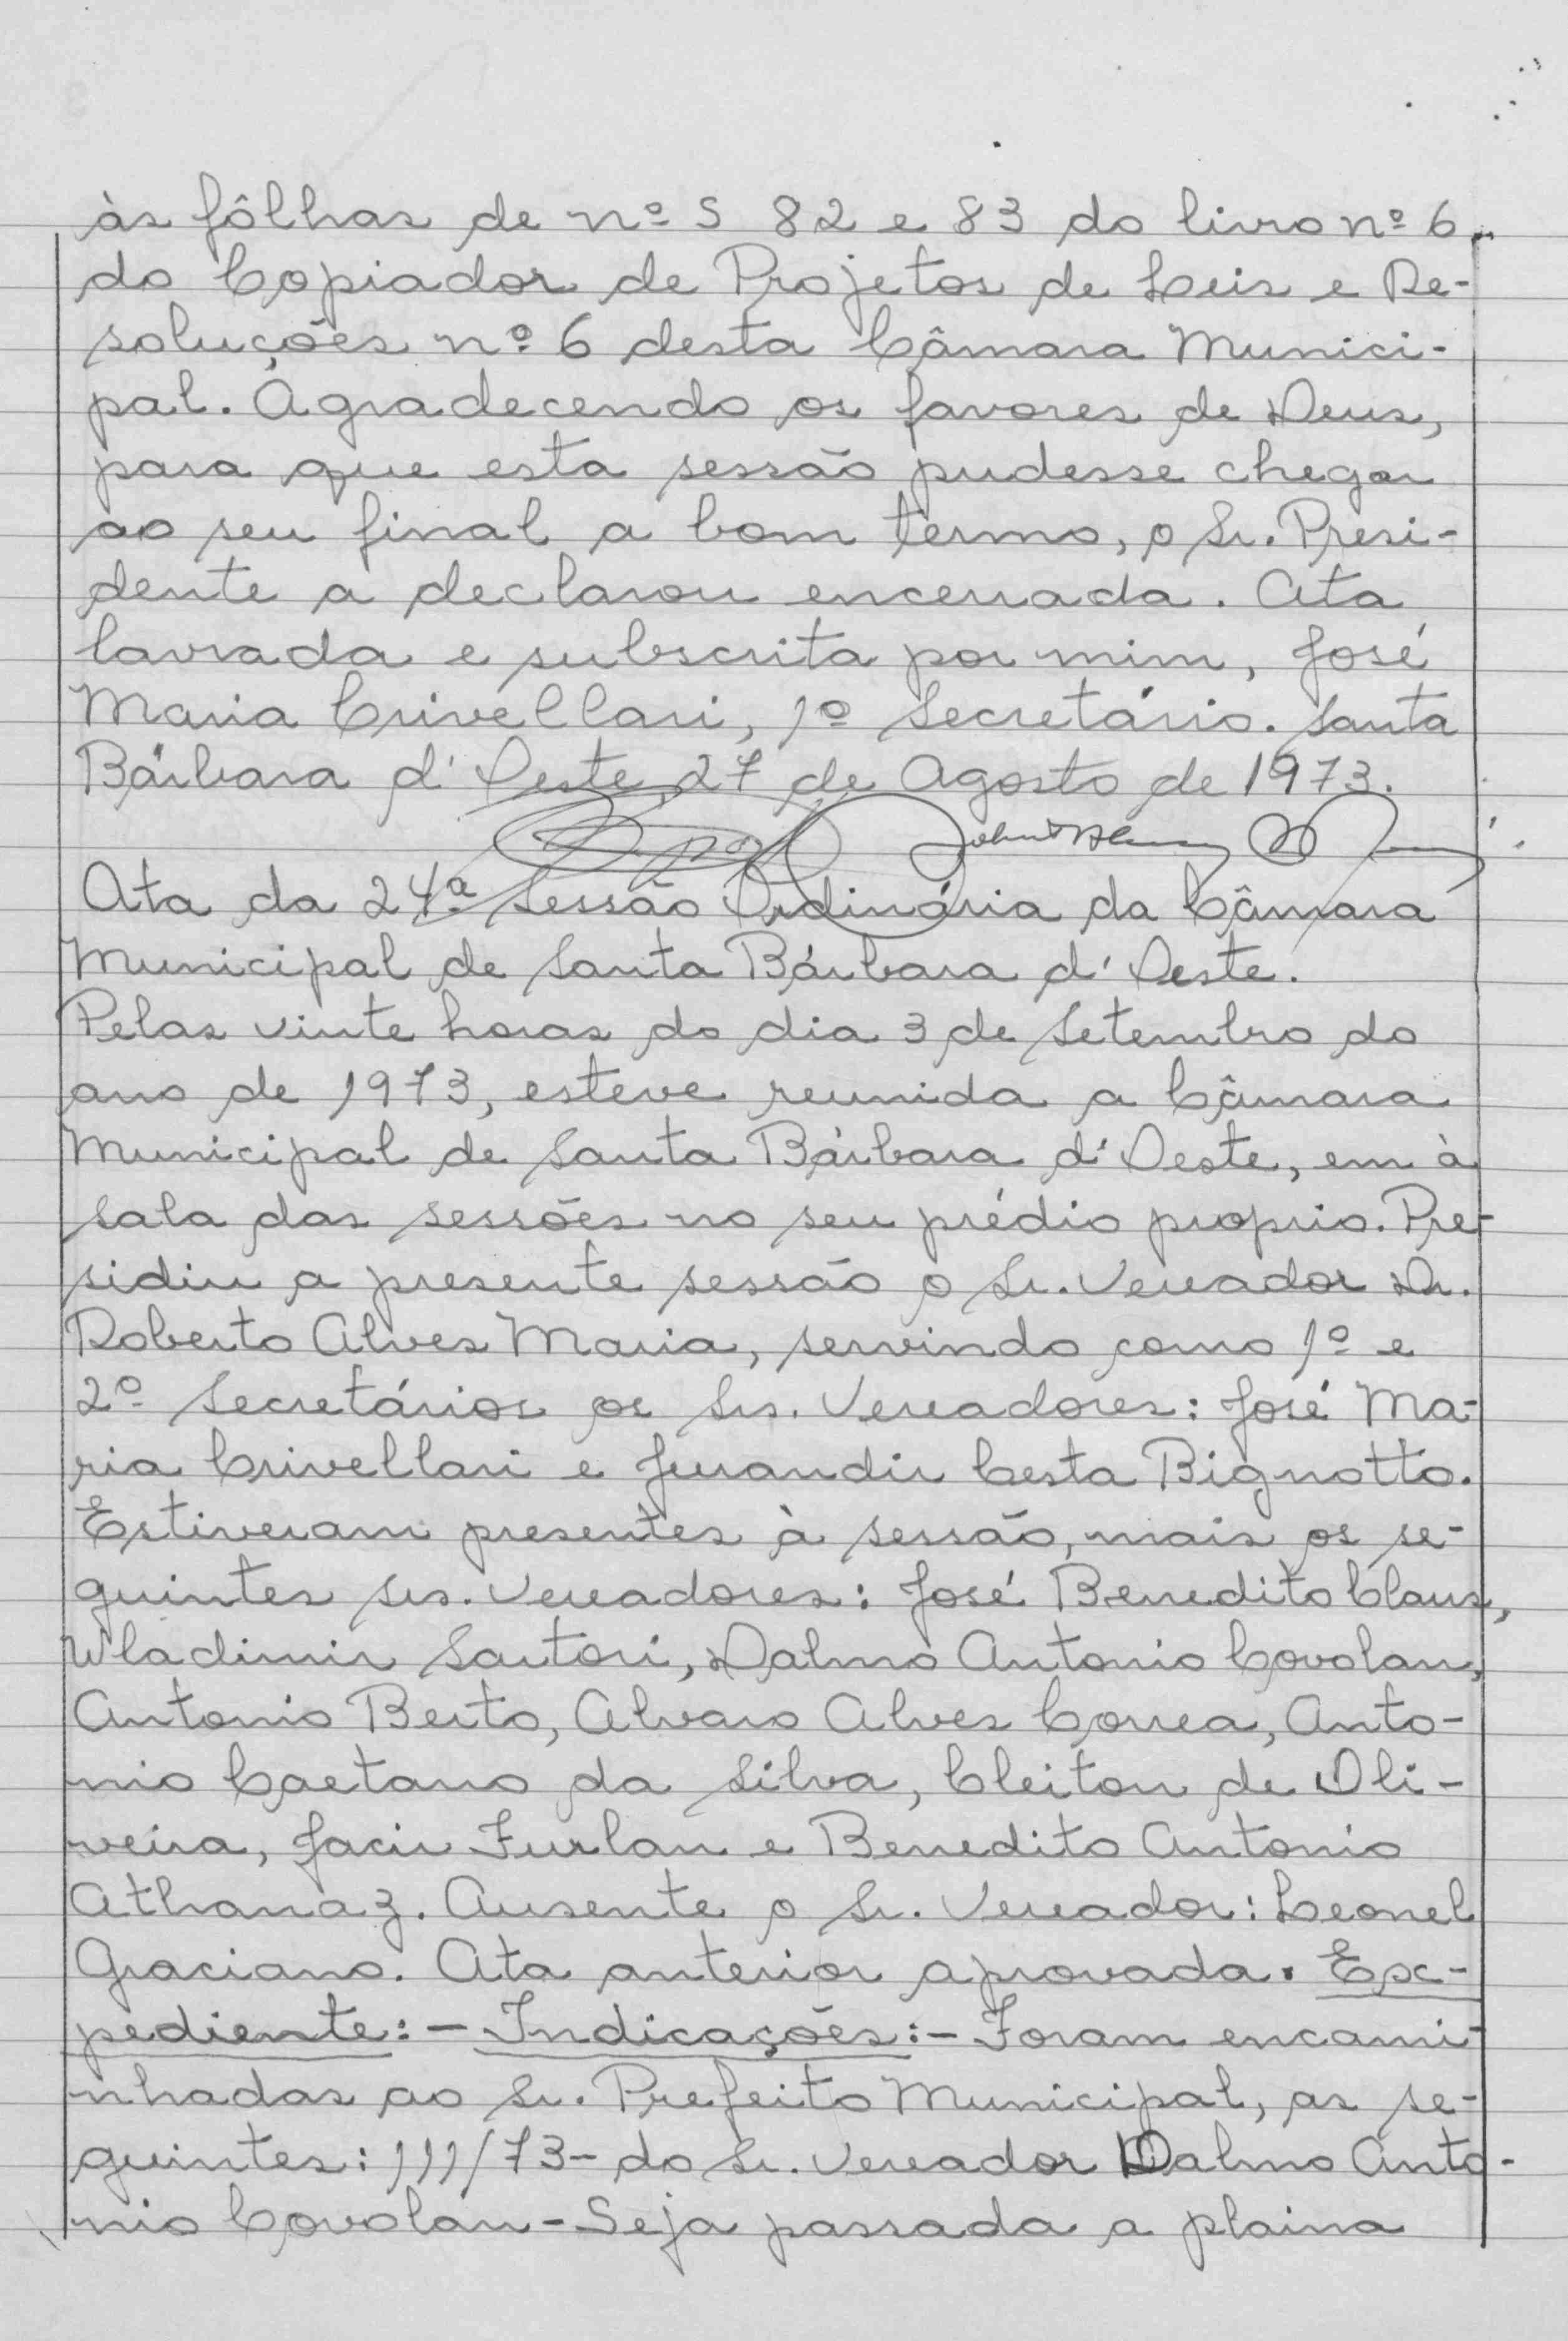 às fôlhas de nº s 82 e 83 do livro nº 6
do Copiador de Projetos de Leis e Re-
soluções nº 6 desta Câmara Munici-
pal. Agradecendo os favores de Deus,
para que esta sessão pudesse chegar
ao seu final a bom termo, o Sr. Presi-
dente a declarou encerrada. Ata
lavrada e subscrita por mim, José
Maria Crivellari, 1º Secretário. Santa
Bárbara d'Oeste, 27 de Agosto de 1973.
Ata da 24ª Sessão Ordinária da Câmara
Municipal de Santa Bárbara d'Oeste.
Pelas vinte horas do dia 3 de Setembro do
ano de 1973, esteve reunida a Câmara
Municipal de Santa Bárbara d'Oeste, em à
sala das sessões no seu prédio proprio. Pre-
sidiu a presente sessão o Sr. Vereador Dr.
Roberto Alves Maria, servindo como 1º e
2º Secretários os Srs. Vereadores: José Ma-
ria Crivellari e Jurandir Cesta Bignotto.
Estiveram presentes à sessão, mais os se-
guintes srs. Vereadores: José Benedito Claus,
Wladimir Sartori, Dalmo Antonio Covolan,
Antonio Berto, Alvaro Alves Correa, Anto-
nio Caetano da Silva, Cleiton de Oli-
veira, Jacir Furlan e Benedito Antonio
Athanaz. Ausente o Sr. Vereador: Leonel
Graciano. Ata anterior aprovada. Ex-
pediente:- Indicações:- Foram encami-
nhadas ao Sr. Prefeito Municipal, as se-
guintes: 111/73- do Sr. Vereador Dalmo Anto-
nio Covolan - Seja passada a plaina